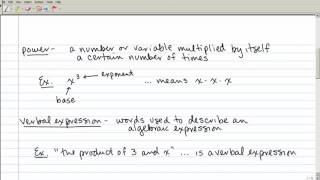 power - a number or variable multiplied by itself
a certain number of times
Ex. x³ ← exponent ... means x · x · x
base
verbal expression - words used to describe an
algebraic expression
Ex. "the product of 3 and x" ... is a verbal expression